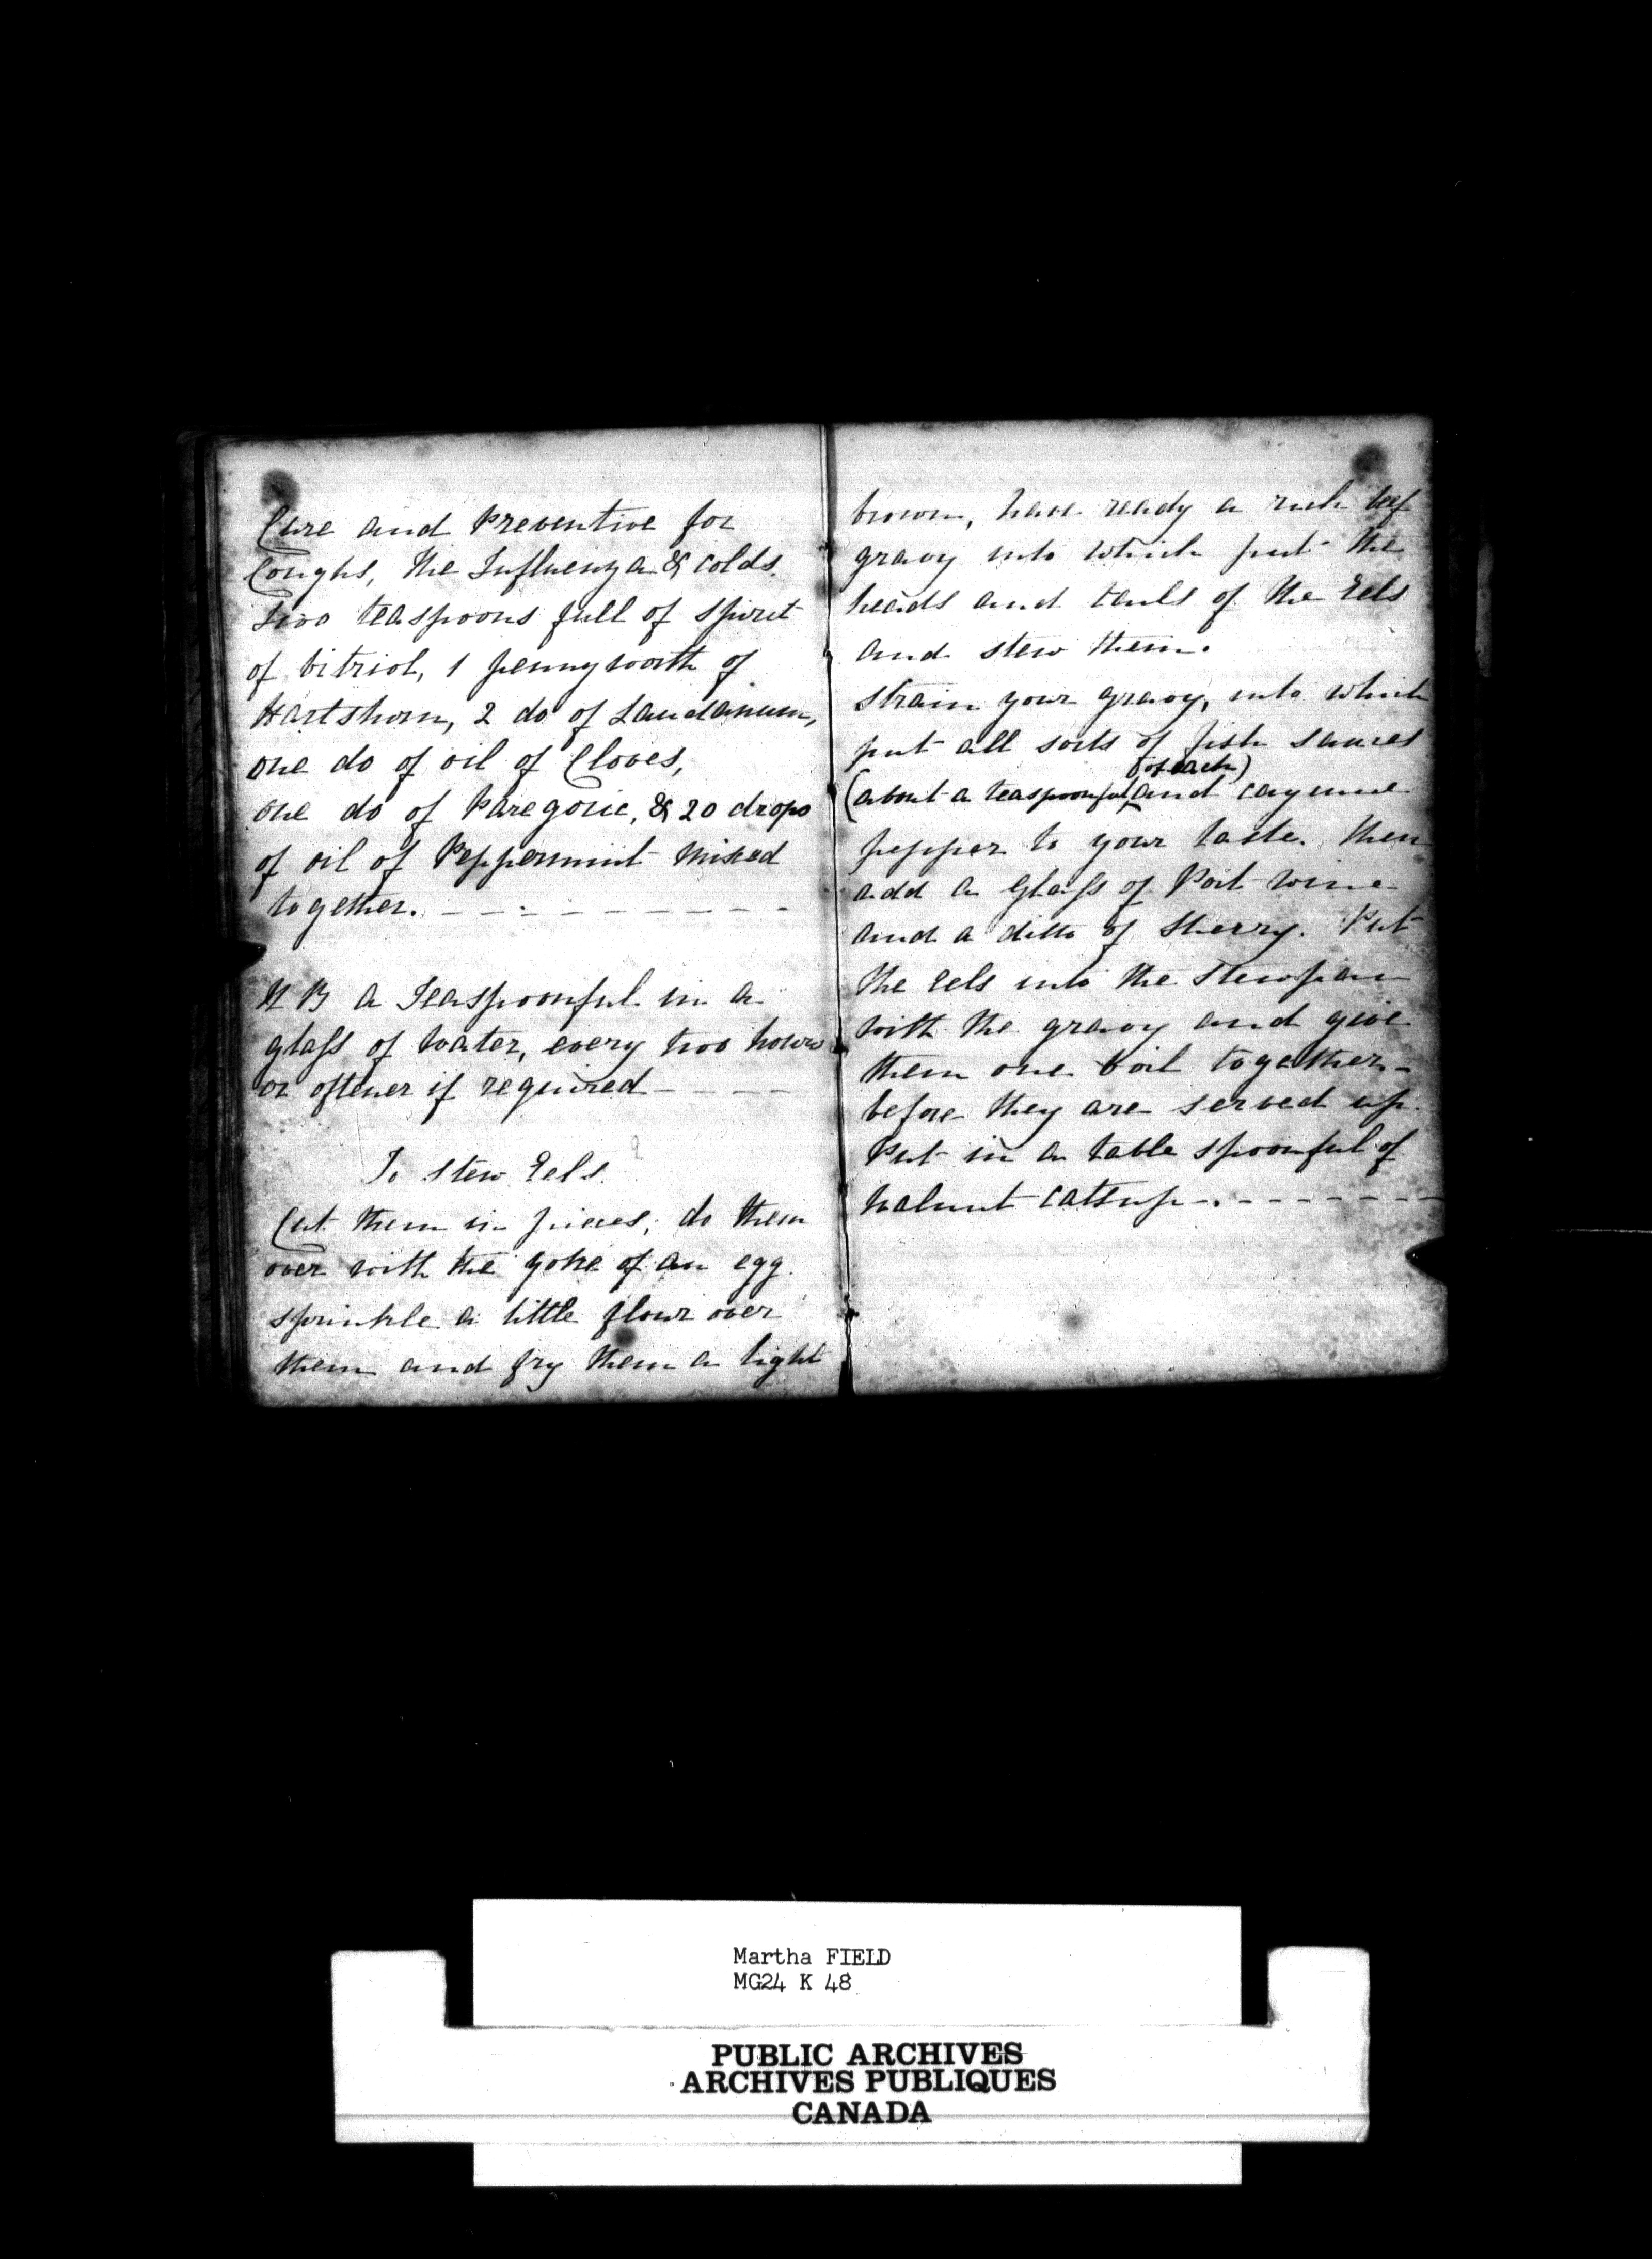 Cure and Preventive for
Coughs, the Influenza & colds.
Two teaspoons full of spirit
of vitriol, 1 pennyworth of
Hartshorn, 2 do of Laudanum,
one do of oil of Cloves,
one do of Paregoric, & 20 drops
of oil of Peppermint mixed
together. - - - - - - - - -
N B a Teaspoonful in a
glass of water, every two hours
or oftener if required - - - -
To stew Eels.
Cut them in pieces; do them
over with the yoke of an egg.
sprinkle a little flour over
them and fry them a light
brown, have ready a rich beef
gravy into which put the
heads and tails of the Eels
and stew them.
strain your gravy, into which
put all sorts of fish sauces
(of each)
(about a teaspoonful and cayenne
pepper to your taste. then
add a glass of Port wine
and a ditto of Sherry. Put
the Eels into the stewpan
with the gravy and give
them one boil together -
before they are served up.
Put in a table spoonful of
walnut catsup - . - - - - - - -
Martha FIELD
MG24 K 48
PUBLIC ARCHIVES
ARCHIVES PUBLIQUES
CANADA